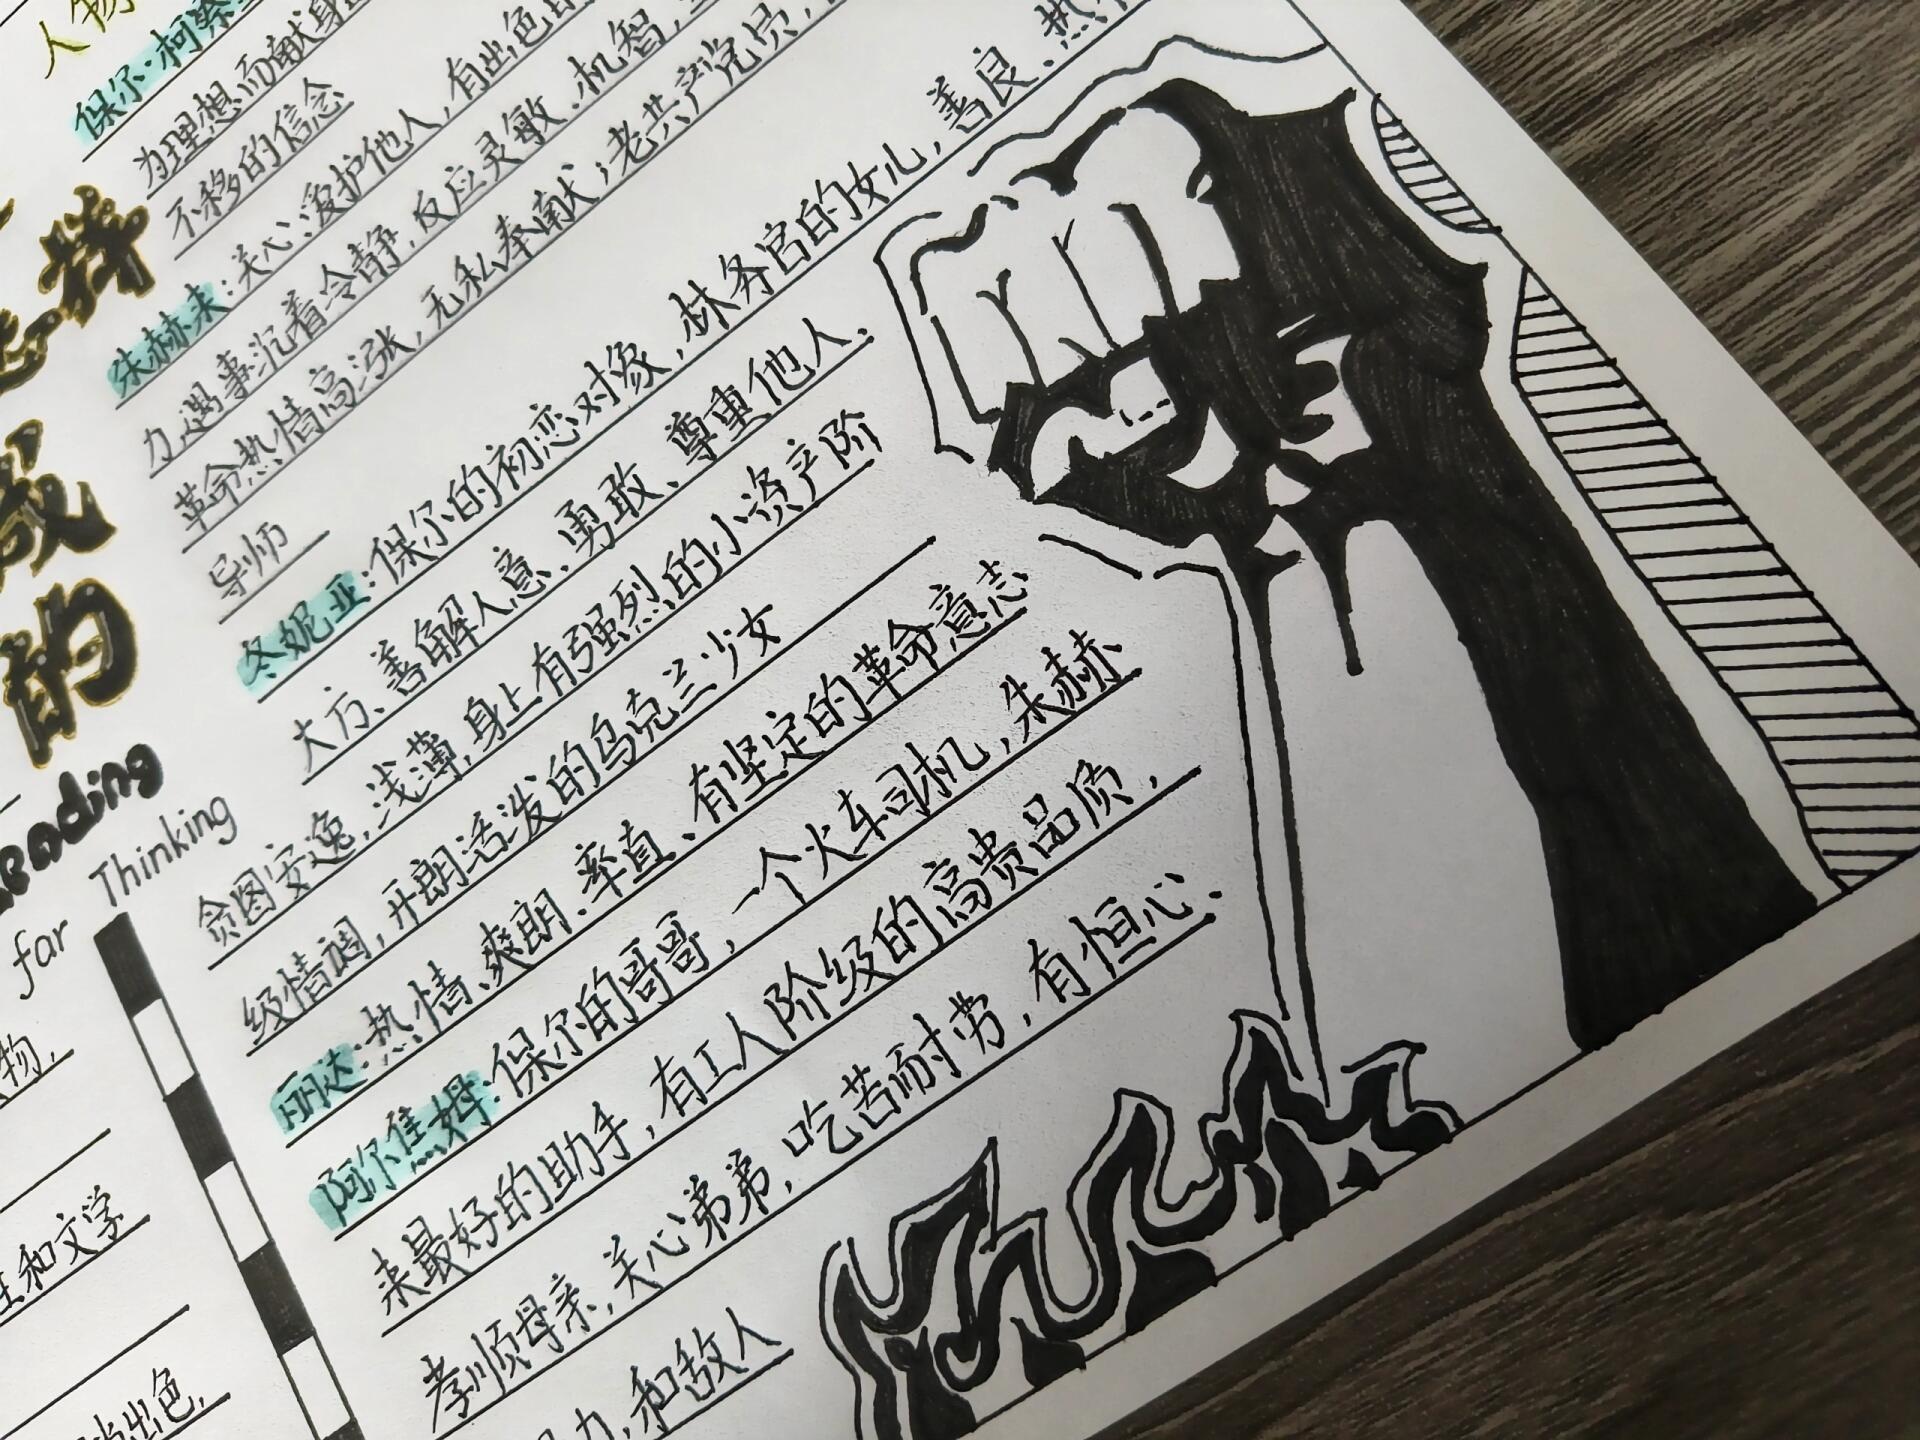 人物
保尔·柯察
为理想而献身
不移的信念
朱赫来：关心、爱护他人，有出色的
力，遇事沉着冷静，反应灵敏、机智，
革命热情高涨，无私奉献；老共产党员，
导师
冬妮亚：保尔的初恋对象，林务官的女儿，善良、热
大方、善解人意、勇敢、尊重他人、
贪图安逸，浅薄，身上有强烈的小资产阶
级情调，开朗活泼的乌克兰少女
丽达：热情、爽朗、率直、有坚定的革命意志
阿尔焦姆：保尔的哥哥，一个火车司机，朱赫
来最好的助手，有工人阶级的高贵品质，
孝顺母亲，关心弟弟，吃苦耐劳，有恒心、
力，和敌人
怎样
成
的
Reading
for Thinking
物，
和文学
出色，